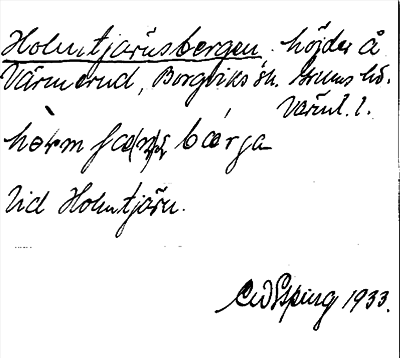 Holmtjärnsbergen höjder å
Värmerud, Borgviks sn. Grums hd.
Värml. l.
bärja
Vid Holmtjärn.
1933.